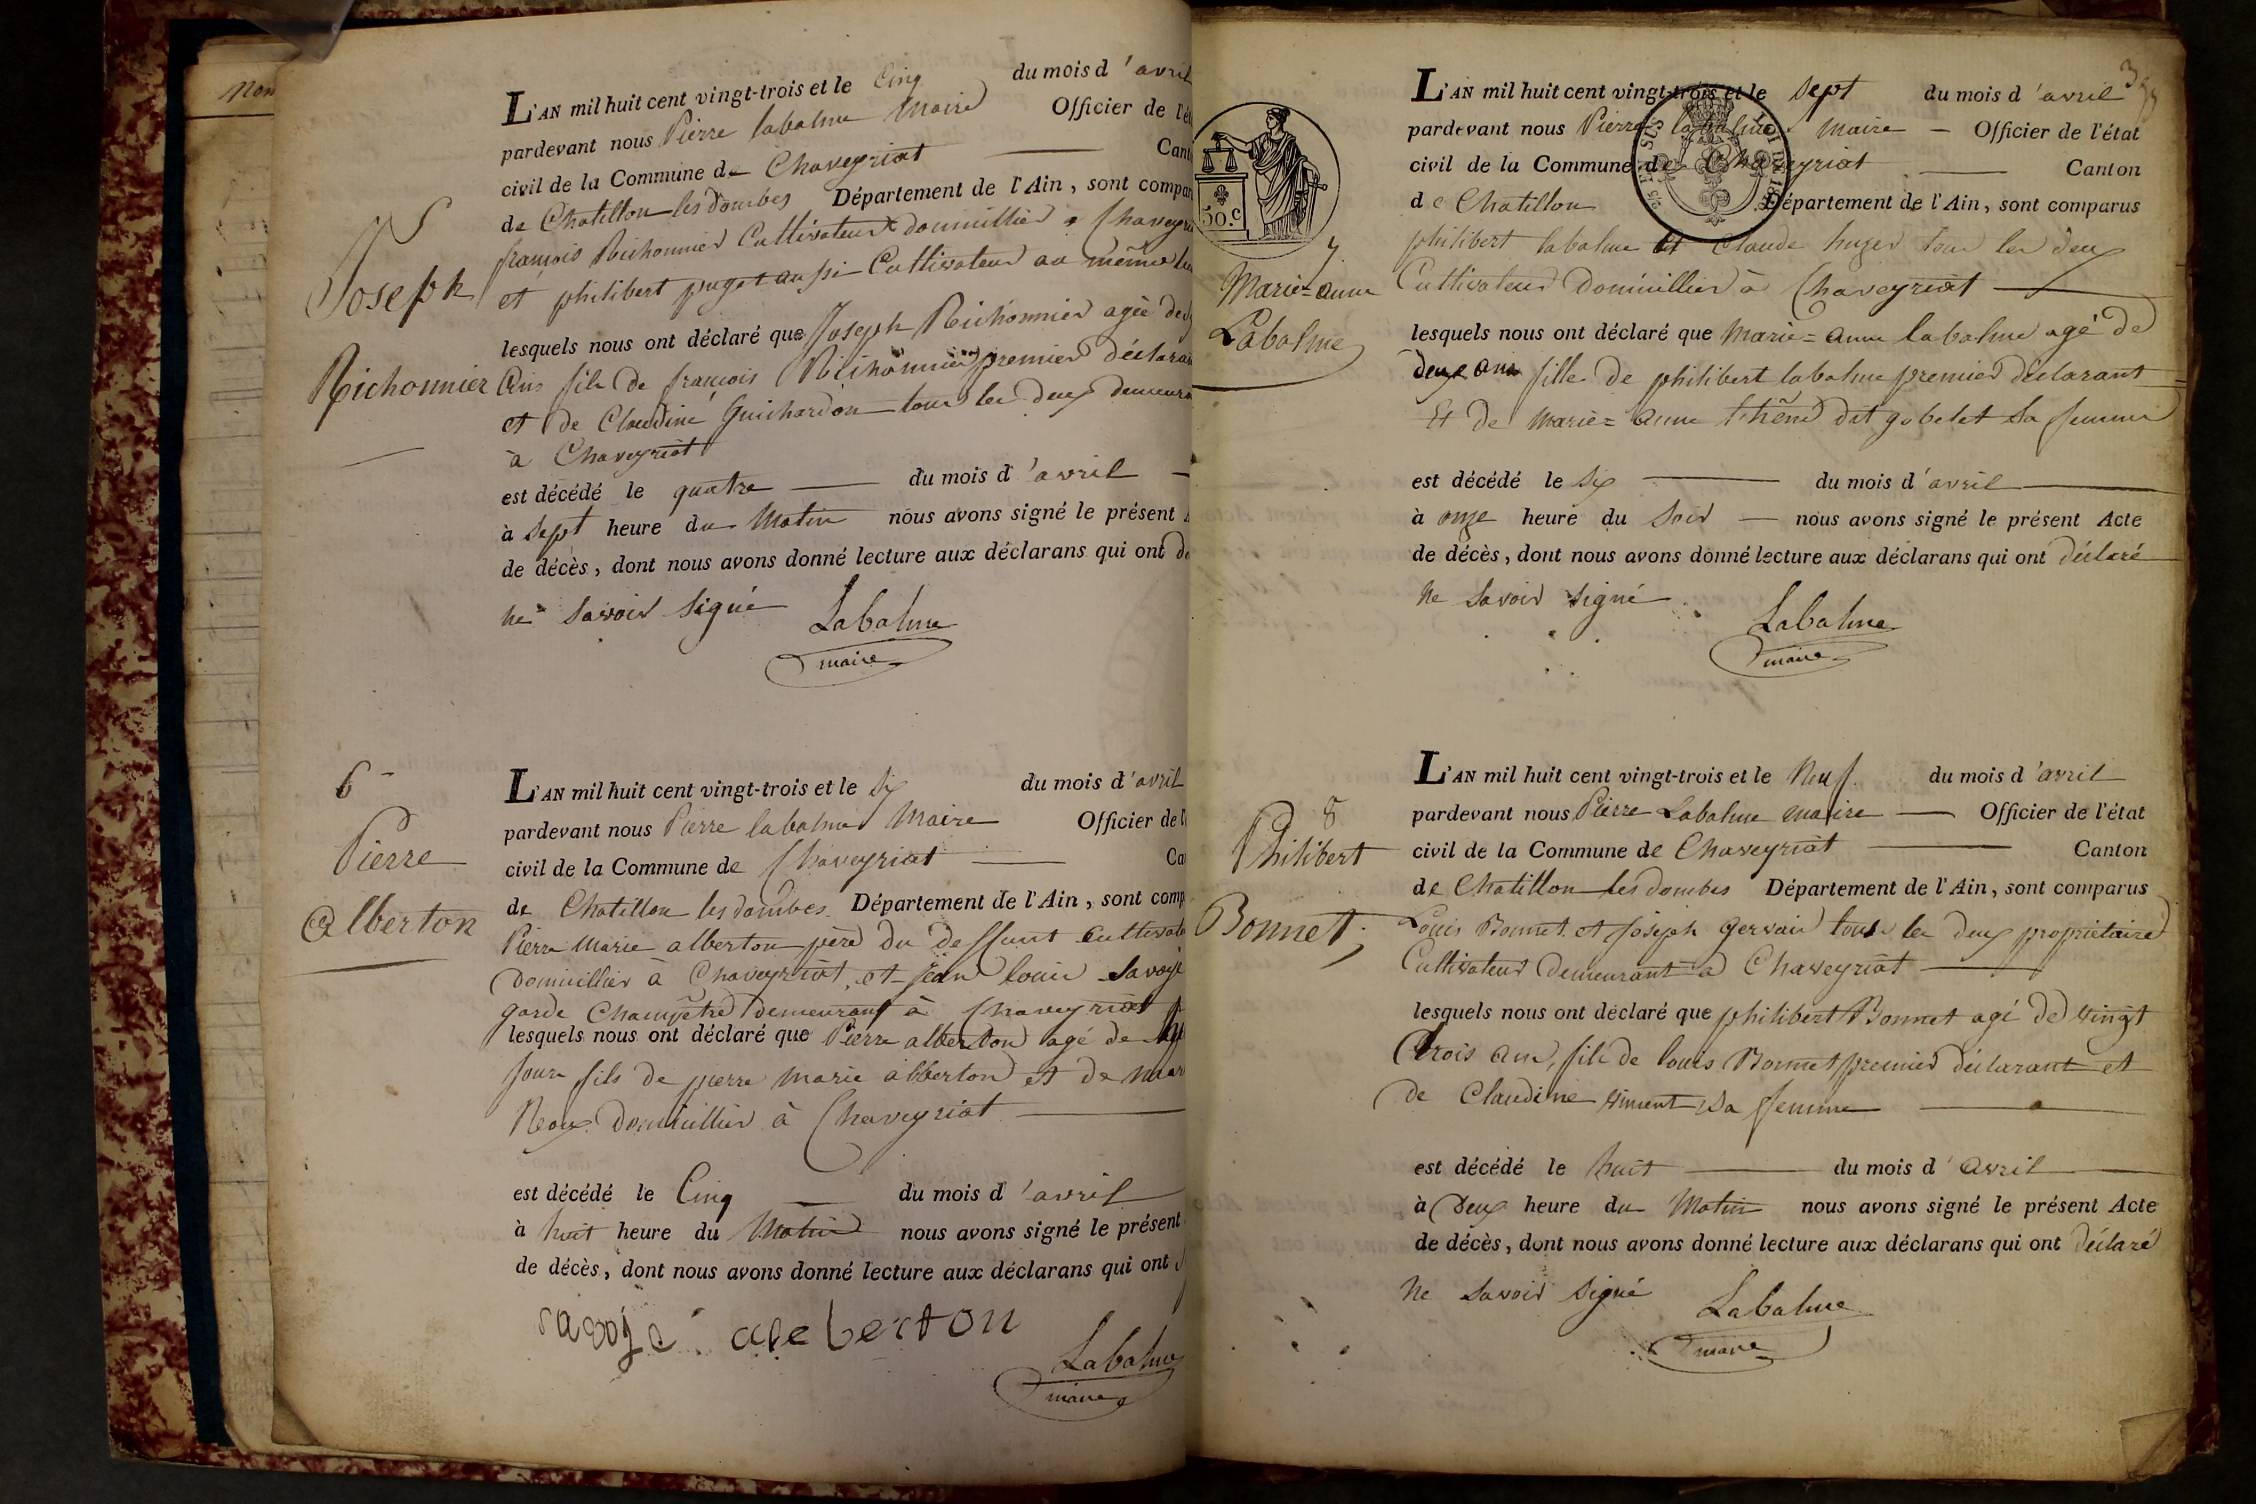 Nom
5
Joseph
Richonnier
L'AN mil huit cent vingt-trois et le Cinq du mois d'avril
pardevant nous Pierre labalme Maire Officier de l'é
civil de la Commune de Chaveyriat Cant
de Chatillon les dombes Département de l'Ain, sont compar
françois Richonnier Cultivateur domicillier a Chaveyri
et philibert puget aussi Cultivateur au même
lesquels nous ont déclaré que Joseph Richonnier agée de
Ans fils de françois Richonnier premier déclara
et de Claudine Guichardon tous les deux demeura
à Chaveyriat
est décédé le quatre du mois d'avril
à sept heure du Matin nous avons signé le présent
de décès, dont nous avons donné lecture aux déclarans qui ont dé
ne savoir signé Labalme
maire
6
Pierre
alberton
L'AN mil huit cent vingt-trois et le Six du mois d'avril
pardevant nous Pierre labalme Maire Officier de l'
civil de la Commune de Chaveyriat Ca
de Chatillon les dombes Département de l'Ain, sont comp
Pierre Marie alberton père du deffunt cultivate
domicillier à Chaveyriat, et jean louis Savoye
garde Champêtre demeurant à Chaveyriat
lesquels nous ont déclaré que Pierre alberton agé de
jours fils de pierre marie alberton et de mar
Roux domicillier à Chaveyriat
est décédé le Cinq du mois d'avril
à huit heure du Matin nous avons signé le présent
de décès, dont nous avons donné lecture aux déclarans qui ont
savoye aleberton
Labalme
maire
50 c.
7
Marie=anne
Labalme
L'AN mil huit cent vingt-trois et le Sept du mois d'avril
pardevant nous Pierre labalme maire Officier de l'état
civil de la Commune de Chaveyriat Canton
de Chatillon Département de l'Ain, sont comparus
philibert labalme et Claude huger tous les deux
Cultivateur domicillier à Chaveyriat
lesquels nous ont déclaré que Marie=anne labalme agé de
deux ans fille de philibert labalme premier déclarant
Et de marie=anne dit gobelet sa femme
est décédé le Six du mois d'avril
à onze heure du Soir nous avons signé le présent Acte
de décès, dont nous avons donné lecture aux déclarans qui ont déclaré
ne savoir signé
Labalme
maire
8
Philibert
Bonnet
L'AN mil huit cent vingt-trois et le Neuf du mois d'avril
pardevant nous Pierre Labalme maire Officier de l'état
civil de la Commune de Chaveyriat Canton
de Chatillon les dombes Département de l'Ain, sont comparus
Louis Bonnet et Joseph gervais tous les deux propriétaire
Cultivateur demeurant a Chaveyriat
lesquels nous ont déclaré que philibert Bonnet agé de vingt
trois ans, fils de louis Bonnet premier déclarant et
de Claudine vincent sa femme
est décédé le huit du mois d'avril
à deux heure du Matin nous avons signé le présent Acte
de décès, dont nous avons donné lecture aux déclarans qui ont déclaré
ne savoir signé Labalme
maire